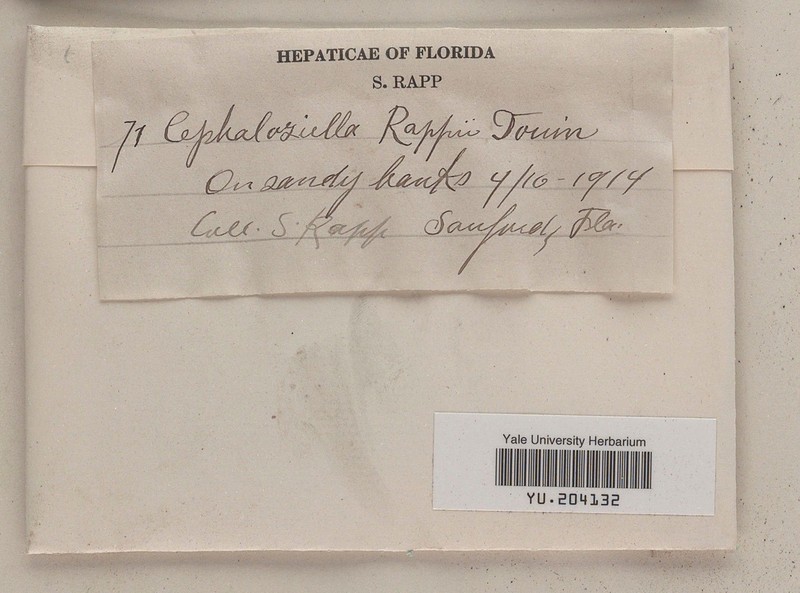 HEPATICAE OF FLORIDA
S. RAPP
71 Cephaloziella Rappii Douin
On sandy banks 4/16-1914
Coll. S. Rapp Sanford, Fla.
Yale University Herbarium
YU.204132